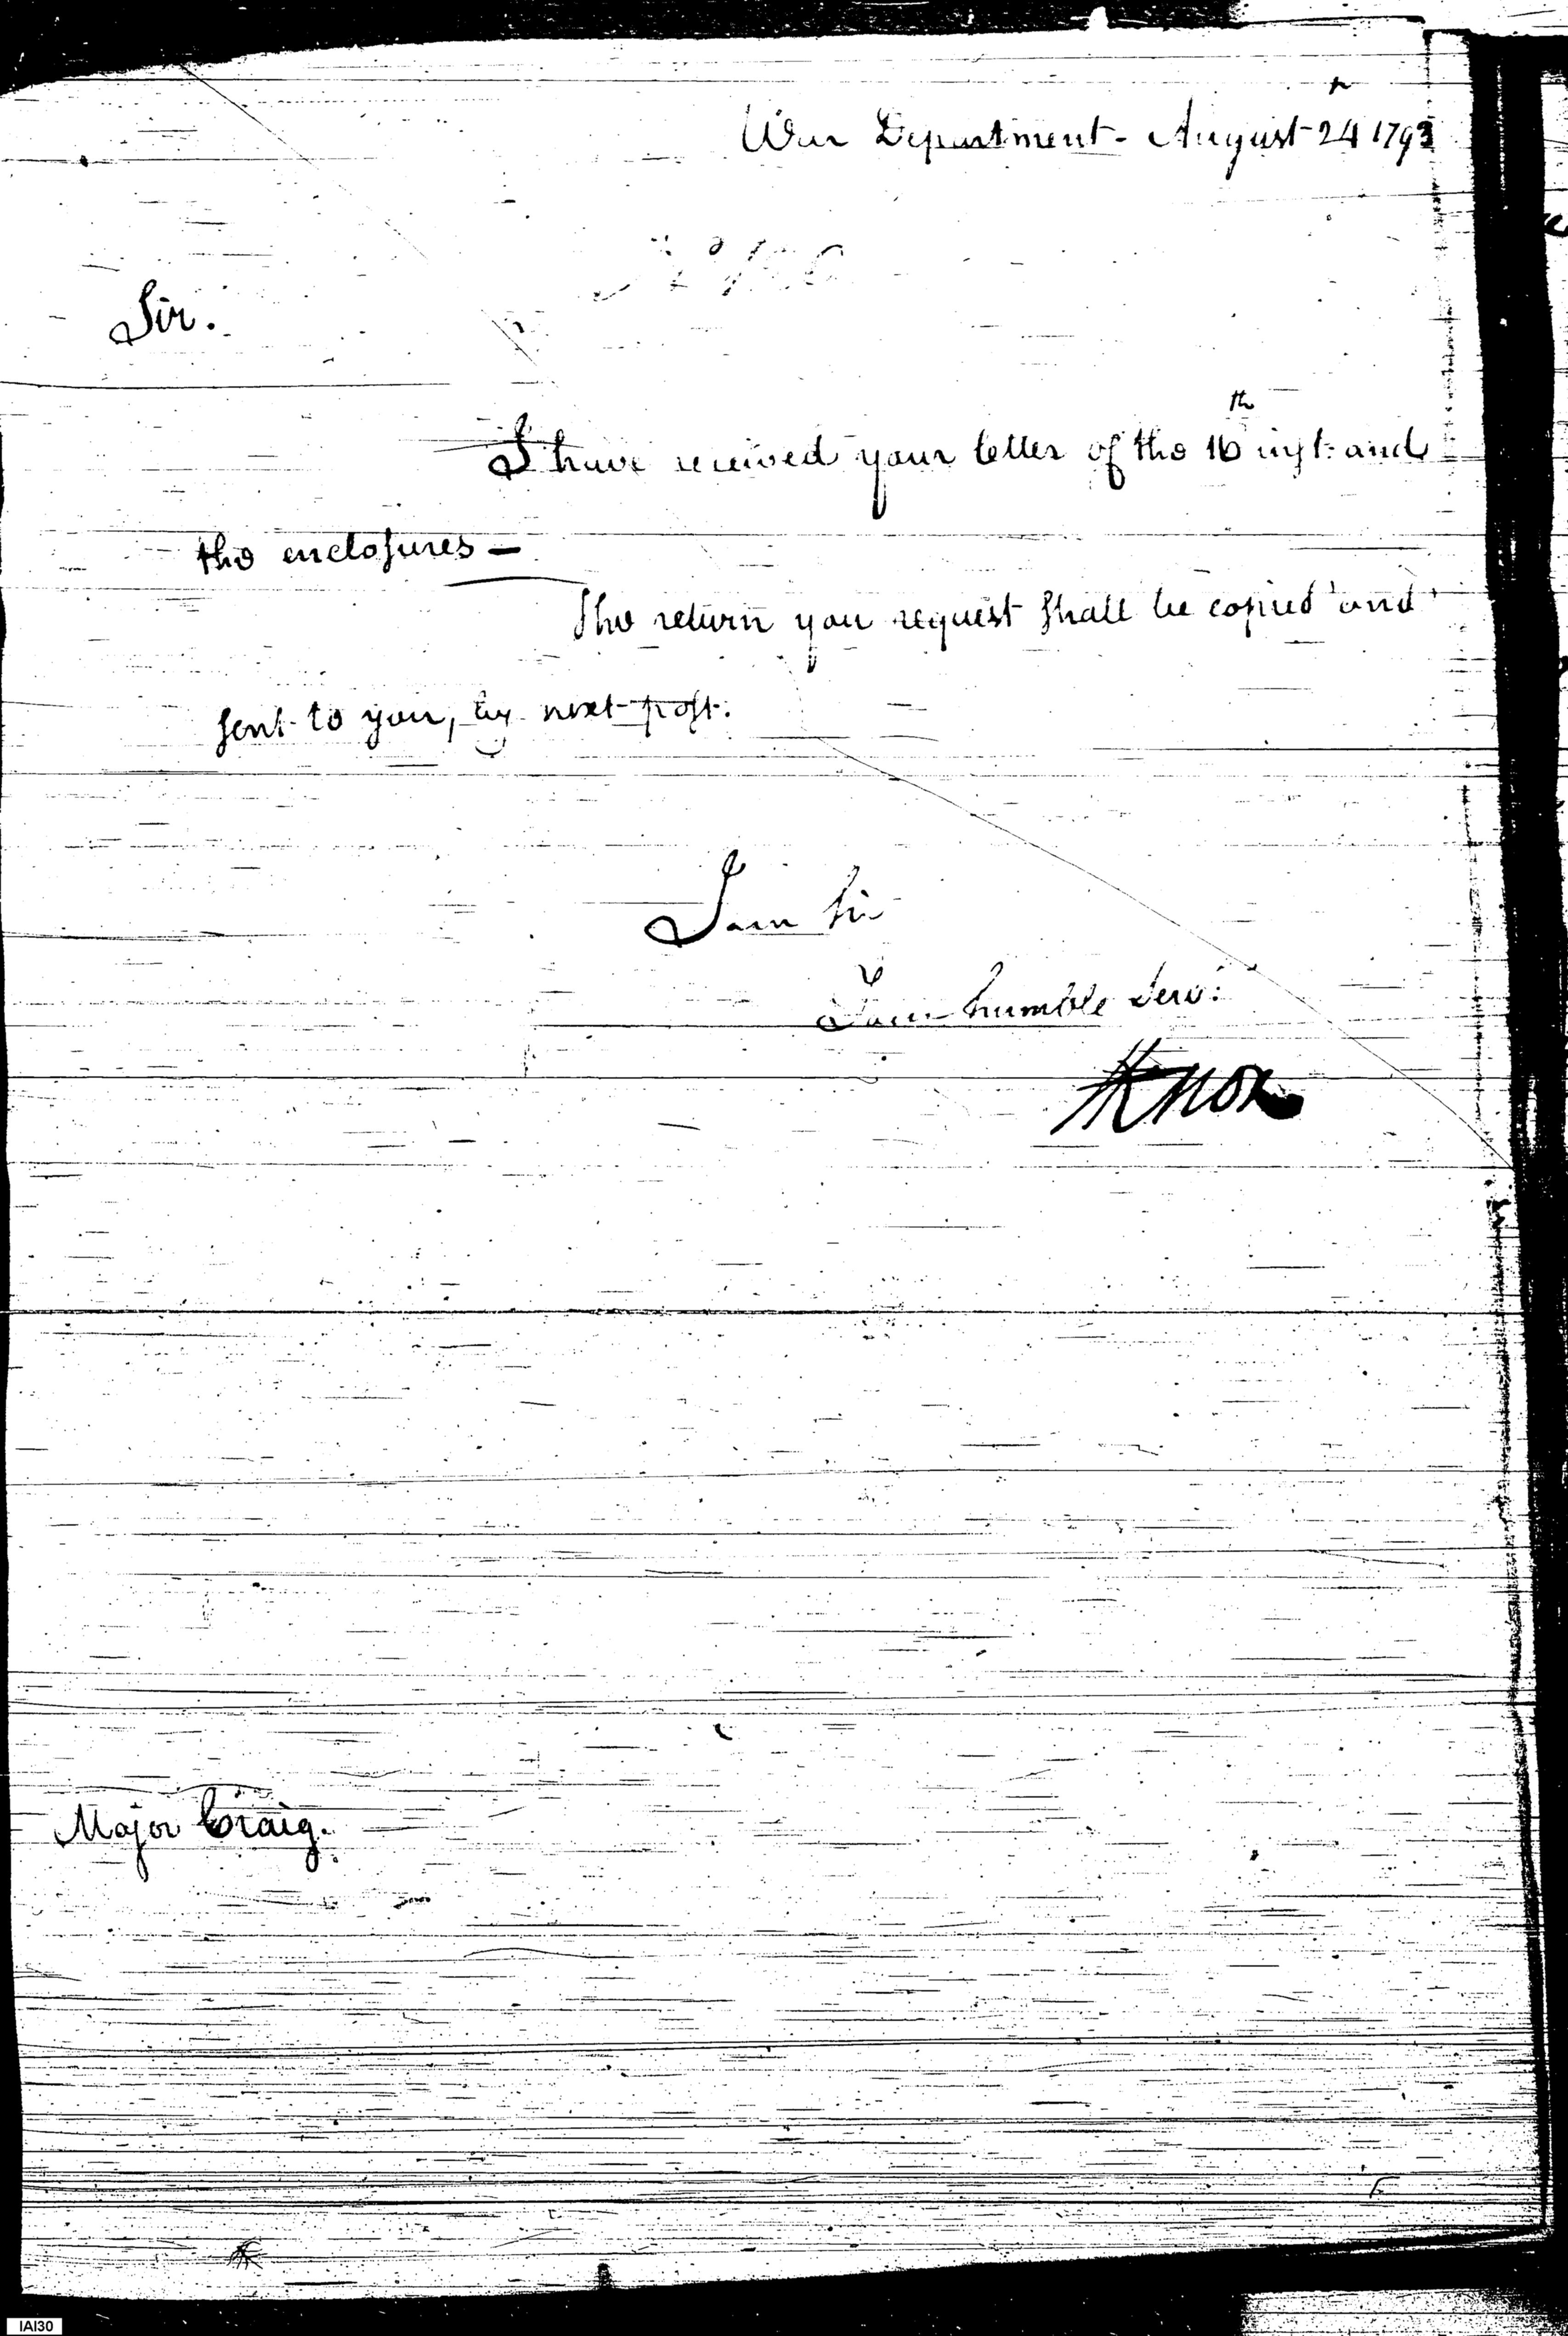 War Department - August 24th 1793
Sir.
I have received your letter of the 16th inst. and
the enclosures —
The return you request shall be copied and
sent to you, by next post.
I am Sir
Your humble Serv.t
HKnox
Major Craig.
IAI30